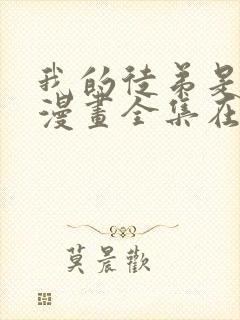 我的徒弟是
漫畫全集在
莫晨歡